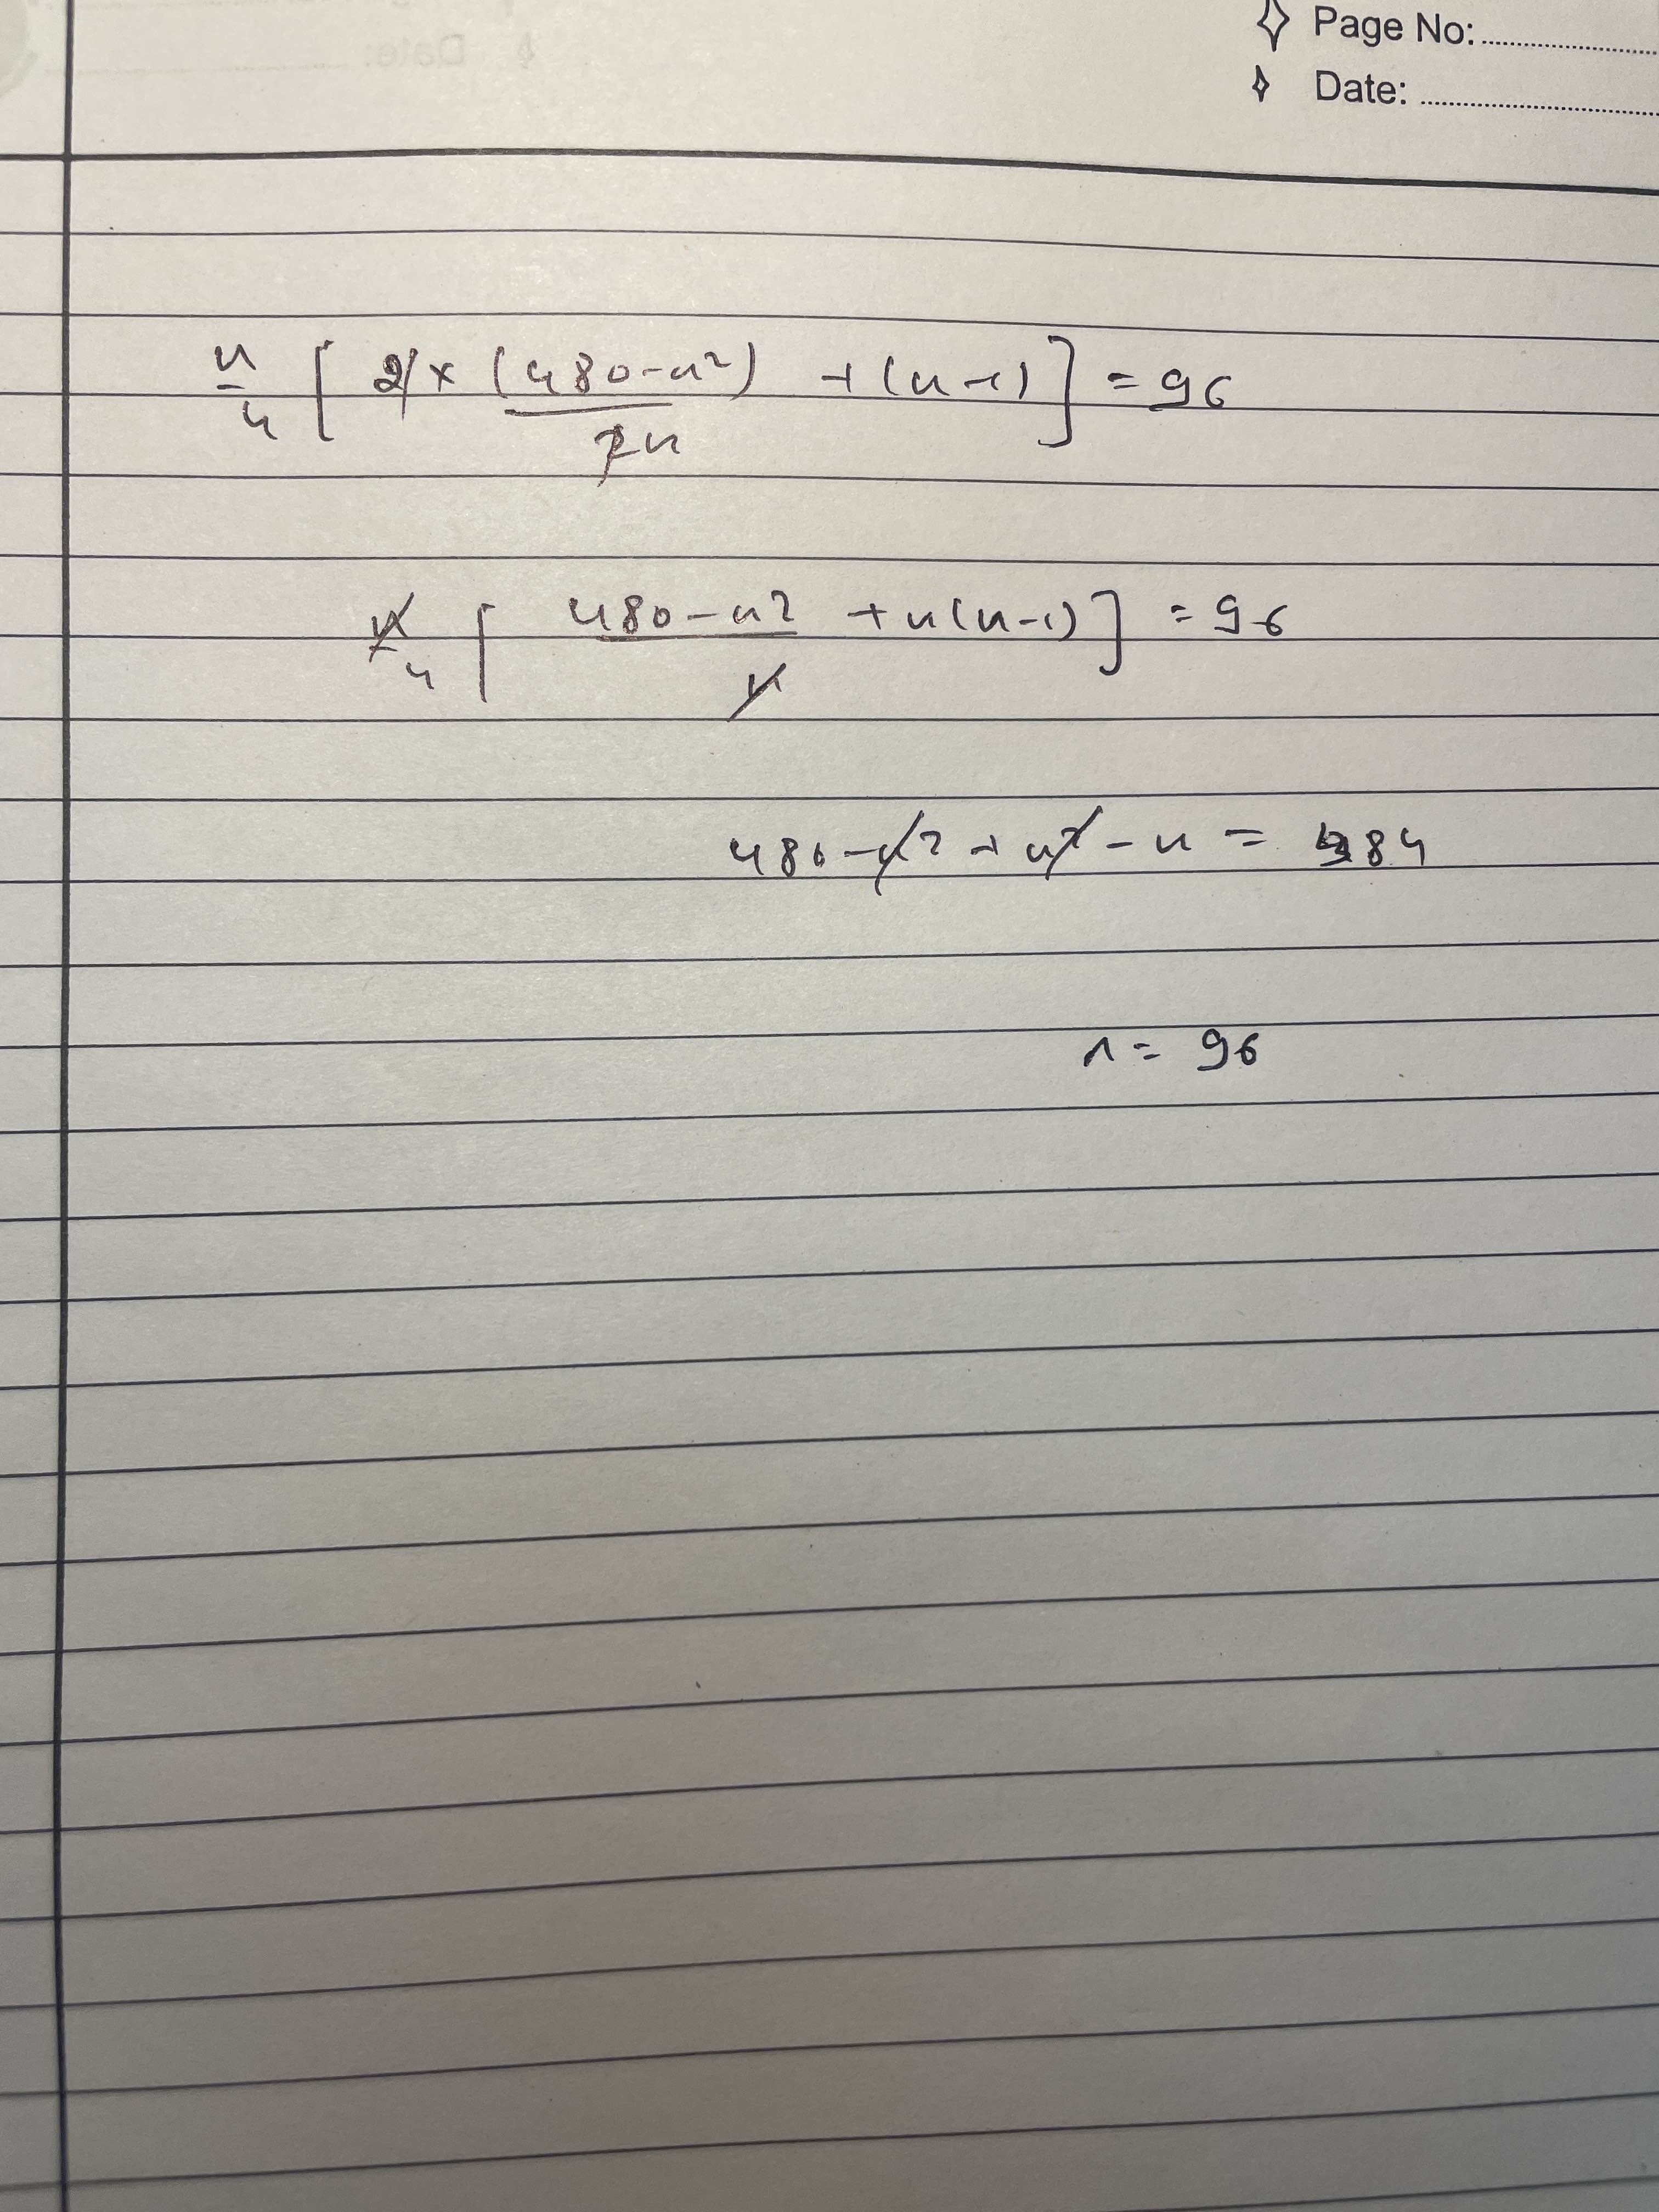 Page No:
Date:
n/4 [ 2 × (480-n²)/2n + (n-1) ] = 96
n/4 [ 480-n² + n(n-1) / n ] = 96
480 - n² + n² - n = 384
n = 96